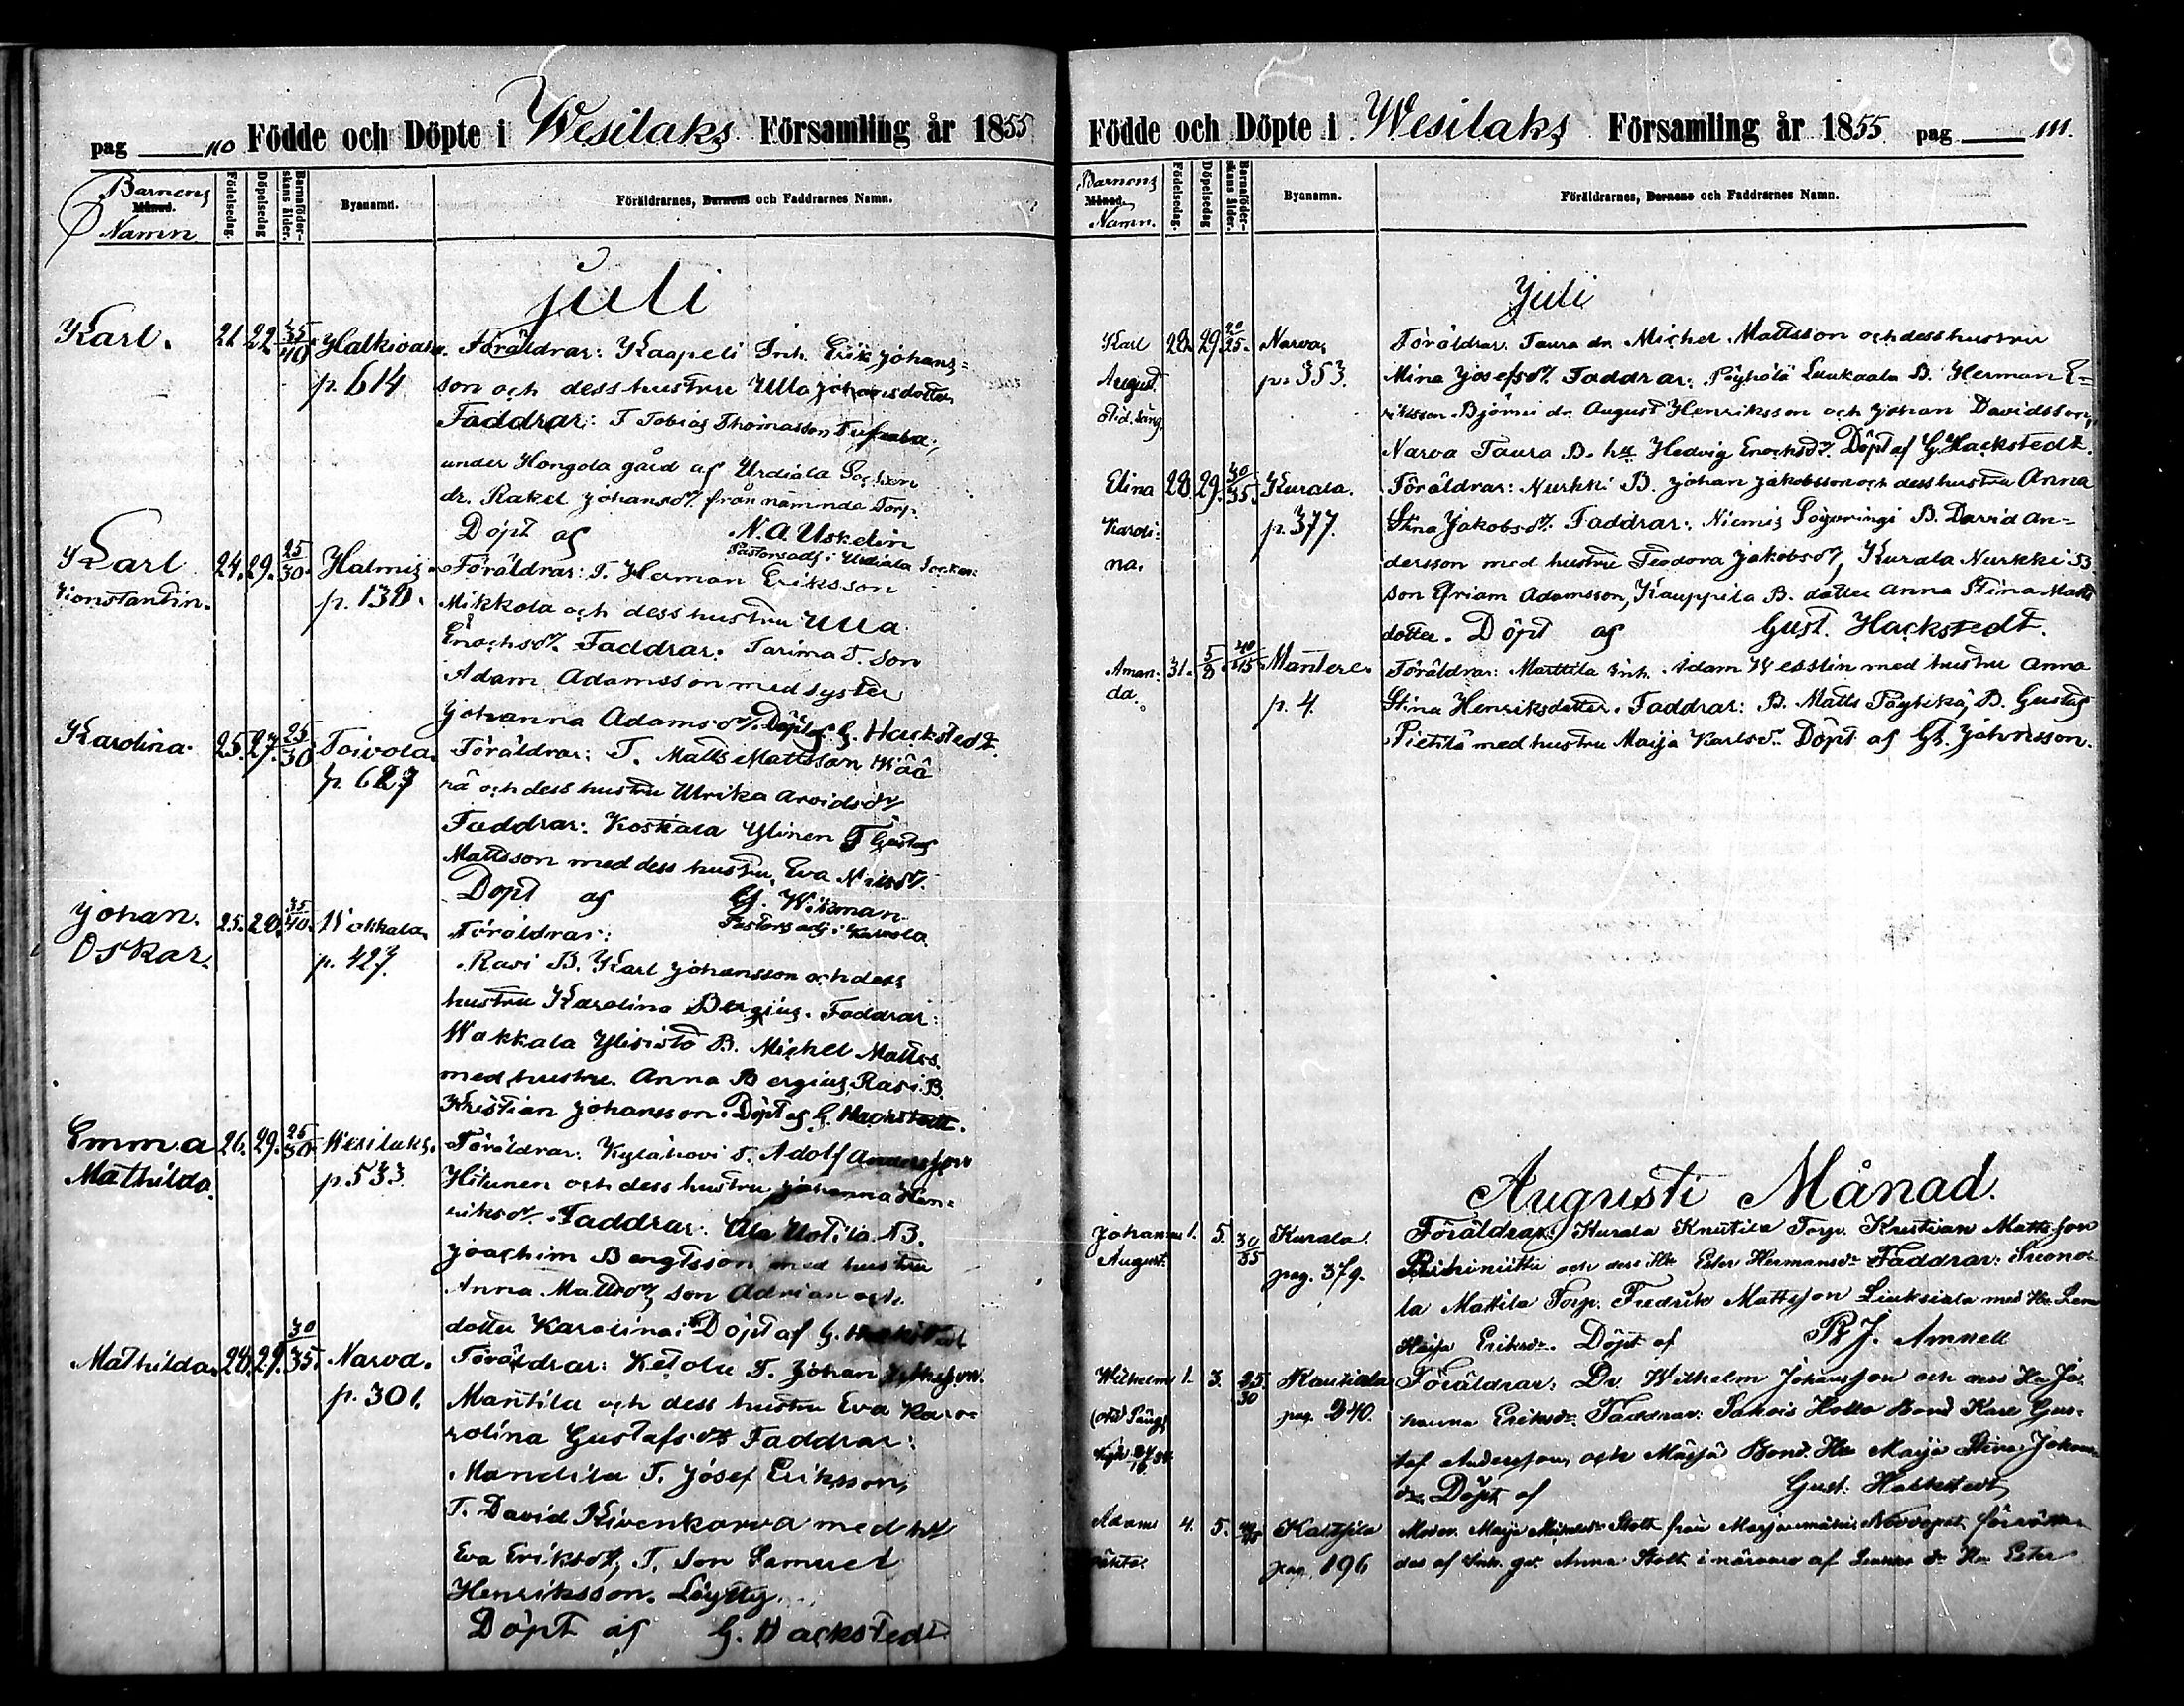 pag 110 Födde och Döpte i Wesilaks Församling år 1855
Barnens Månad. Namn
Födelsedag.
Döpelsedag
Barnaföderskans ålder.
Byanamn.
Föräldrarnes, Barnens och Faddrarnes Namn.
Juli
Karl. 21 22 35/40 Halkivaha. Föräldrar: Kaapeli Inh. Erik Johans=
p. 614 son och dess hustru Ulla Johansdotter
Faddrar: T Tobias Thomasson
under Hongola gård af Urdiala Socken
dr. Rakel Johansdr från nämnde Torp.
Döpt af N. A. Uskelin
Pastorsadj. i Urdiala Socken
Karl 24. 29. 25/30. Halmis. Föräldrar: T. Herman Eriksson
Konstantin. p. 130. Mikkola och dess hustru Ulla
Enochsdr. Faddrar: Tarima T. Son
Adam Adamsson med syster
Johanna Adamsdr. Döpt af G. Hackstedt.
Karolina. 25. 27. 25/30 Toivola. Föräldrar: T. Matts Mattsson Wää
p. 627 rä och dess hustru Ulrika Arvidsdr
Faddrar: Koskiala Ylinen T Gustaf
Mattsson med dess hustru Eva Nilsdr.
Döpt af G. Wikman
Pastorsadj. i Karvola
Johan. 25. 28. 35/40. Wakkala. Föräldrar:
Oskar. p. 427. Rasi B. Karl Johansson och dess
hustru Karolina Bergius. Faddrar:
Wakkala Ylisisto B. Michel Matts.
med hustru Anna Bergius, Rasi B.
Kristian Johansson. Döpt af G. Hackstedt.
Emma 26. 29. 25/30 Wesilaks. Föräldrar: Kylähovi T. Adolf Andersson
Mathilda. p. 533 Hitunen och dess hustru Johanna Hen=
riksdr. Faddrar: Ala Uotila B.
Joachim Bengtsson med hustru
Anna Mattsdr, son Adrian och
dotter Karolina. Döpt af G. Hackstedt
Mathilda. 28. 29. 30/35. Narva. Föräldrar: Ketola T. Johan
p. 301. Mantila och dess hustru Eva Ka=
rolina Gustafsdr Faddrar:
Mandila T. Josef Eriksson,
T. David Kivenkorva med hu
Eva Eriksdr, T. Son Samuel
Henriksson. Löytty.
Döpt af G. Hackstedt
Födde och Döpte i Wesilaks Församling år 1855 pag 111.
Barnens Månad. Namn.
Födelsedag.
Döpelsedag
Barnaföderskans ålder.
Byanamn.
Föräldrarnes, Barnens och Faddrarnes Namn.
Juli
Karl 28. 29 20/25. Narva, Föräldrar. Taura dr. Michel Mattsson och dess hustru
August. p. 353. Mina Josefsdr. Faddrar: Pöyhölä Luukaala B. Herman E=
riksson Björni dr. August Henriksson och Johan Davidsson,
Narva Taura B. hu Hedvig Enochsdr. Döpt af G. Hackstedt.
Elina 28. 29. 30/35. Kurala. Föräldrar: Nurkki B. Johan Jakobsson och dess hustru Anna
Karoli= p. 377. Stina Jakobsdr. Faddrar: Niemis B. David An=
na. dersson med hustru Teodora Jakobsdr, Kurala Nurkki B
son Efriam Adamsson, Kauppila B. dotter Anna Stina Matts
dotter. Döpt af Gust. Hackstedt.
Aman= 31. 5/8. 40/45 Mantere. Föräldrar: Marttila Inh. Adam Wesslin med hustru Anna
da. p. 4. Stina Henriksdotter. Faddrar: B. Matts B. Gustaf
Pietilä med hustru Maija Karlsdr. Döpt af G. Johnsson.
Augusti Månad.
Johannes 1. 5. 30/35 Kurala. Föräldrar: Kurala Knutila Torp. Kristian Mattsson
August. pag. 379. Riihiniittu och dess Hu Ester Hermansdr Faddrar:
la Mattila Torp. Fredrik Mattsson Liuksiala med Hu
Maija Eriksdr. Döpt af J. Amnell
Wilhelm 1. 3. 25/30 Rautiala Föräldrar: Dr. Wilhelm Johansson och dess Hu Jo=
pag. 240. hanna Eriksdr. Faddrar: Sakois Hollo Bond Karl Gus=
taf Andersson och Bond. Hu Maija Stina Johans
dr. Döpt af Gust. Hackstedt
Adam 4. 5. Kaltsila Moder. Maija Stolt från
oäkta. pag. 196 des af Inh. Anna Stolt i närvaro af dr Hu Ester